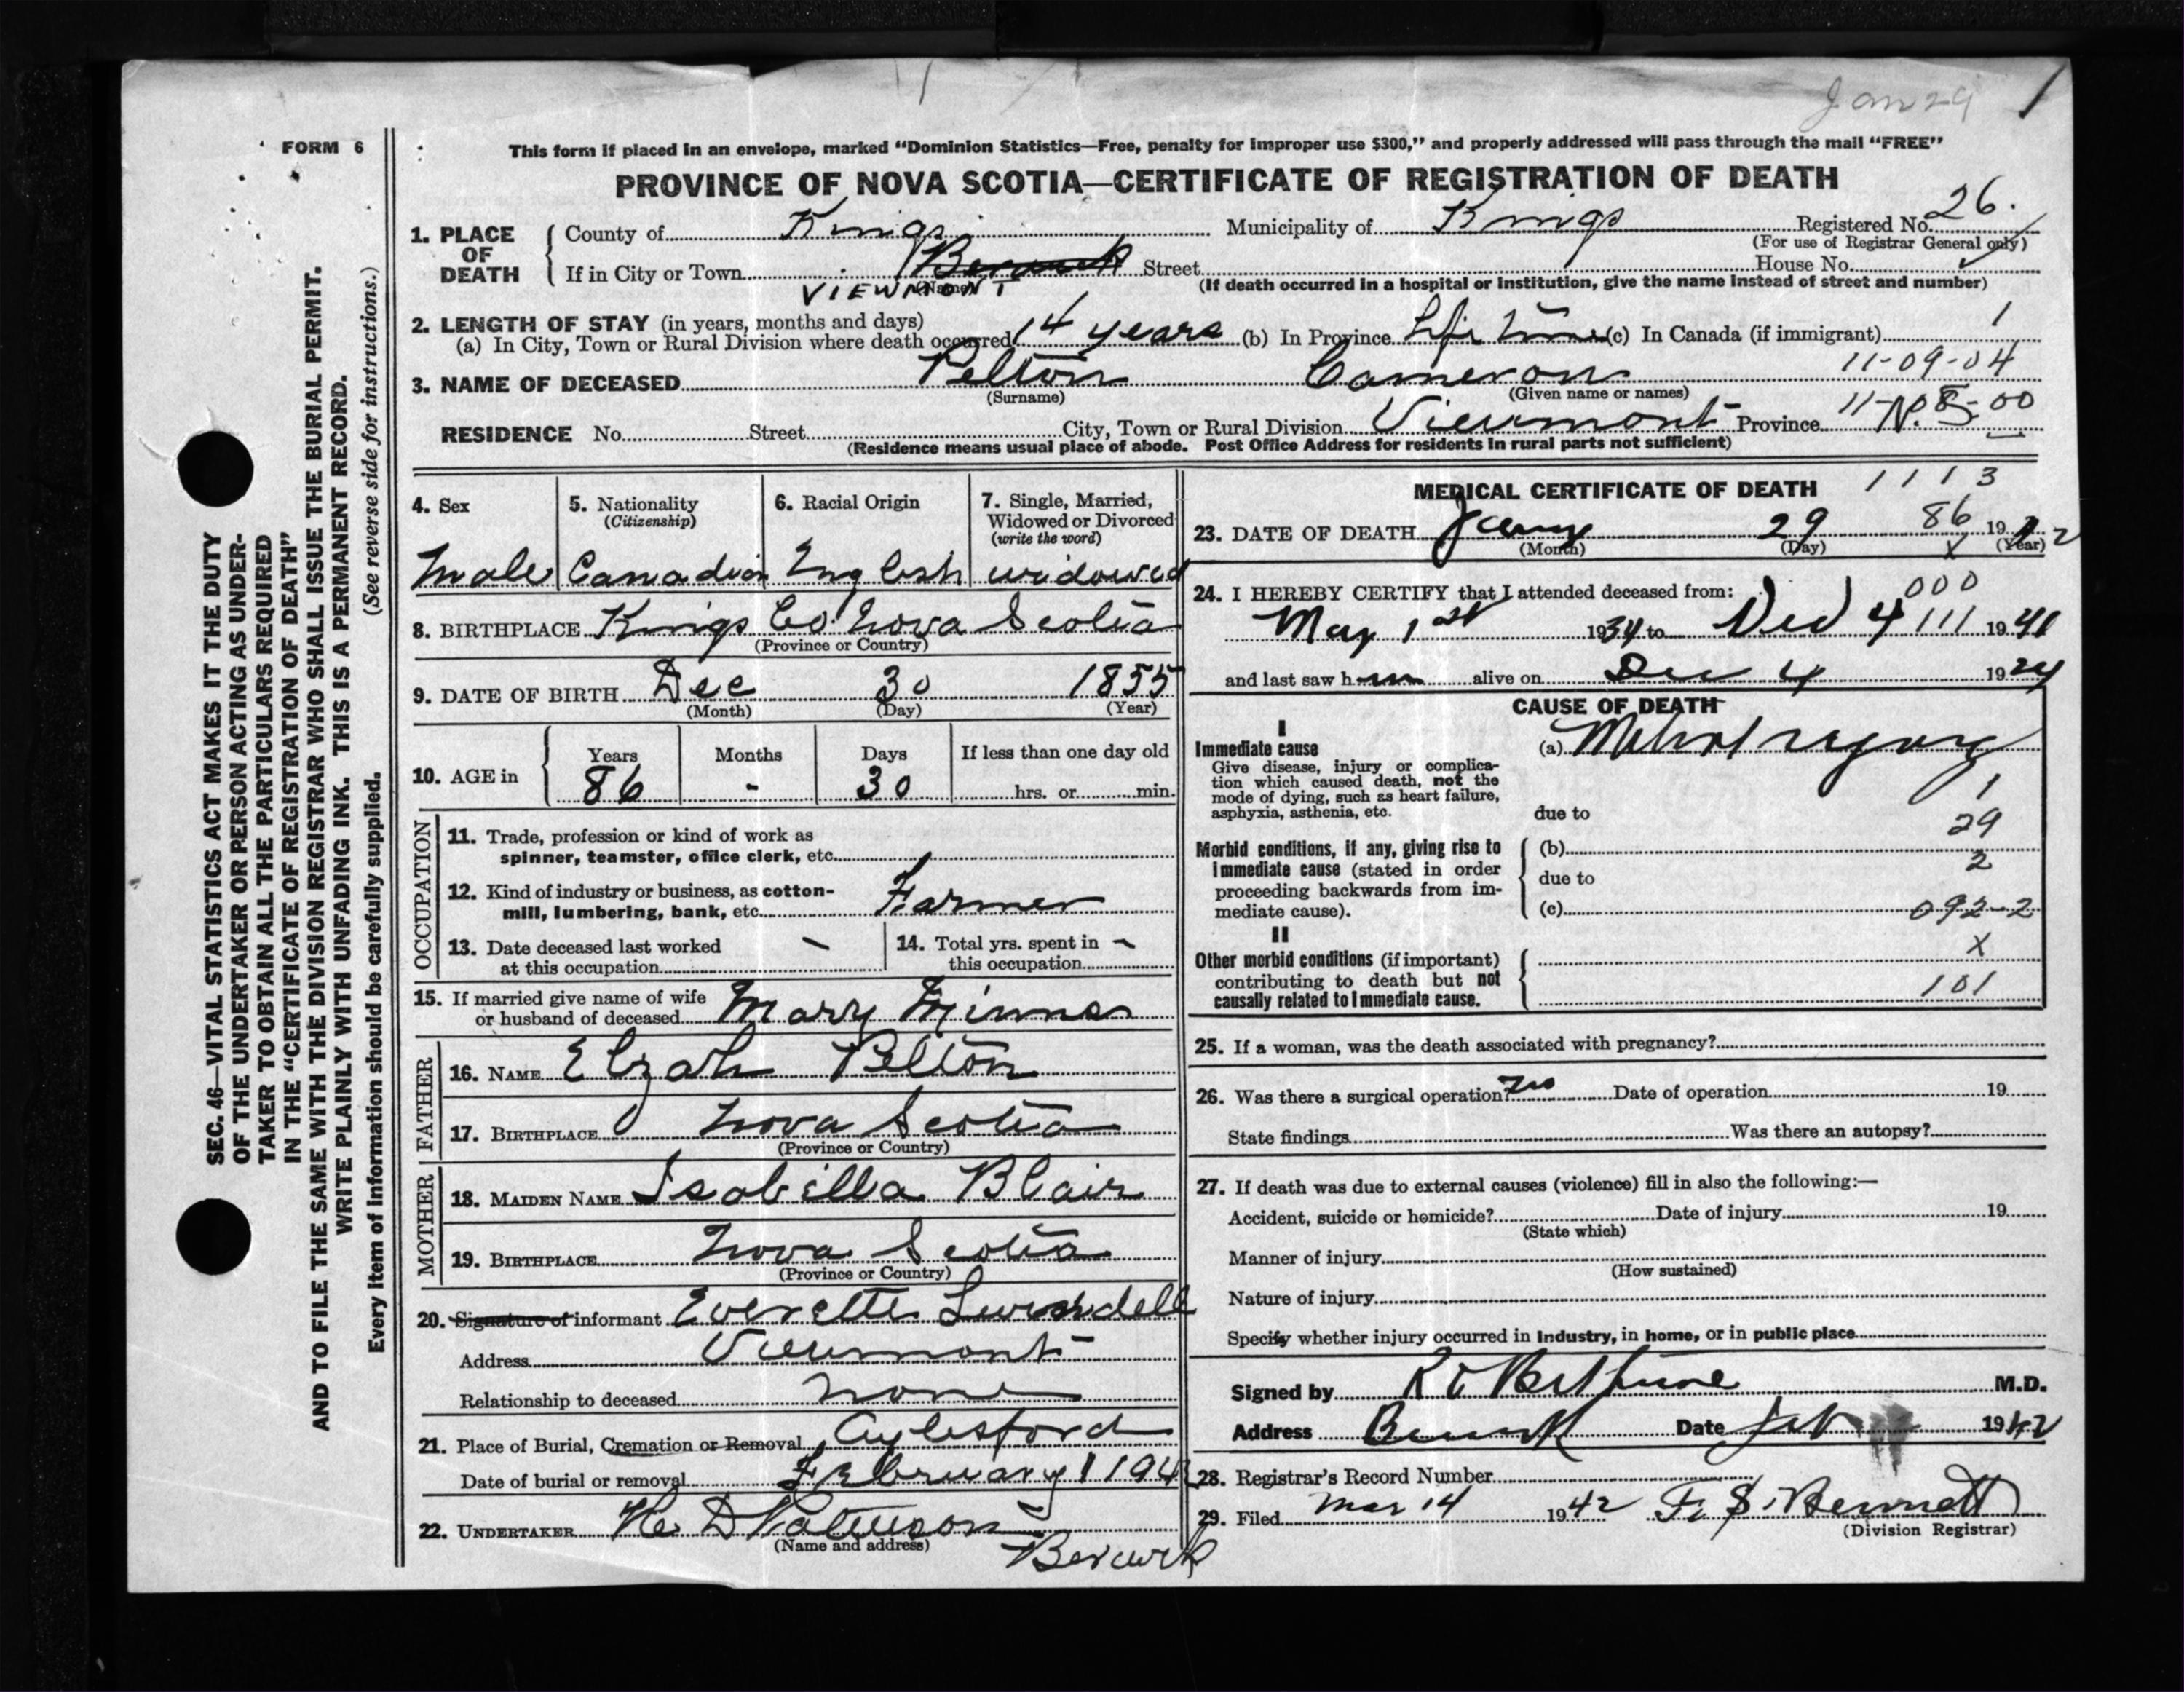 Jan 29
FORM 6
This form if placed in an envelope, marked "Dominion Statistics—Free, penalty for improper use $300," and properly addressed will pass through the mail "FREE"
PROVINCE OF NOVA SCOTIA—CERTIFICATE OF REGISTRATION OF DEATH
SEC. 46—VITAL STATISTICS ACT MAKES IT THE DUTY
OF THE UNDERTAKER OR PERSON ACTING AS UNDER-
TAKER TO OBTAIN ALL THE PARTICULARS REQUIRED
IN THE "CERTIFICATE OF REGISTRATION OF DEATH"
AND TO FILE THE SAME WITH THE DIVISION REGISTRAR WHO SHALL ISSUE THE BURIAL PERMIT.
WRITE PLAINLY WITH UNFADING INK. THIS IS A PERMANENT RECORD.
Every item of information should be carefully supplied. (See reverse side for instructions.)
1. PLACE OF DEATH County of Kings Municipality of Kings Registered No. 26.
(For use of Registrar General only)
If in City or Town Berwick Street House No.
VIEWMONT (Name) (If death occurred in a hospital or institution, give the name instead of street and number)
2. LENGTH OF STAY (in years, months and days) 1
(a) In City, Town or Rural Division where death occurred 14 years (b) In Province Life time (c) In Canada (if immigrant)
11-09-04
3. NAME OF DECEASED Pelton Cameron
(Surname) (Given name or names)
11-08-00
RESIDENCE No. Street City, Town or Rural Division Viewmont Province N.S.
(Residence means usual place of abode. Post Office Address for residents in rural parts not sufficient)
4. Sex 5. Nationality (Citizenship) 6. Racial Origin 7. Single, Married, Widowed or Divorced (write the word)
Male Canadian English widowed
8. BIRTHPLACE Kings Co Nova Scotia
(Province or Country)
9. DATE OF BIRTH Dec 30 1855
(Month) (Day) (Year)
10. AGE in Years Months Days If less than one day old
86 - 30 hrs. or min.
OCCUPATION
11. Trade, profession or kind of work as
spinner, teamster, office clerk, etc.
12. Kind of industry or business, as cotton-
mill, lumbering, bank, etc. Farmer
13. Date deceased last worked at this occupation - 14. Total yrs. spent in this occupation -
15. If married give name of wife
or husband of deceased Mary
FATHER
16. NAME Pelton
17. BIRTHPLACE Nova Scotia
(Province or Country)
MOTHER
18. MAIDEN NAME Isabilla Blair
19. BIRTHPLACE Nova Scotia
(Province or Country)
20. Signature of informant Everette
Address Viewmont
Relationship to deceased none
21. Place of Burial, Cremation or Removal Aylesford
Date of burial or removal February 1 1942
22. UNDERTAKER D Patterson
(Name and address) Berwick
MEDICAL CERTIFICATE OF DEATH 1113
86
23. DATE OF DEATH Jany 29 1942
(Month) (Day) (Year)
x
000
24. I HEREBY CERTIFY that I attended deceased from:
May 1st 1934 to Dec 4 111 1941
and last saw him alive on Dec 4 19
CAUSE OF DEATH
I
Immediate cause (a) Mitral regurg
Give disease, injury or complica-
tion which caused death, not the
mode of dying, such as heart failure,
asphyxia, asthenia, etc. due to
1
29
Morbid conditions, if any, giving rise to (b)
immediate cause (stated in order due to 2
proceeding backwards from im-
mediate cause). (c) 092-2
II
x
Other morbid conditions (if important)
contributing to death but not
causally related to immediate cause. 101
25. If a woman, was the death associated with pregnancy?
26. Was there a surgical operation? no Date of operation 19
State findings Was there an autopsy?
27. If death was due to external causes (violence) fill in also the following:—
Accident, suicide or homicide? Date of injury 19
(State which)
Manner of injury
(How sustained)
Nature of injury
Specify whether injury occurred in industry, in home, or in public place
Signed by Bethune M.D.
Address Berwick Date Feb 1942
28. Registrar's Record Number
29. Filed Mar 14 1942 F. S. Bennett
(Division Registrar)